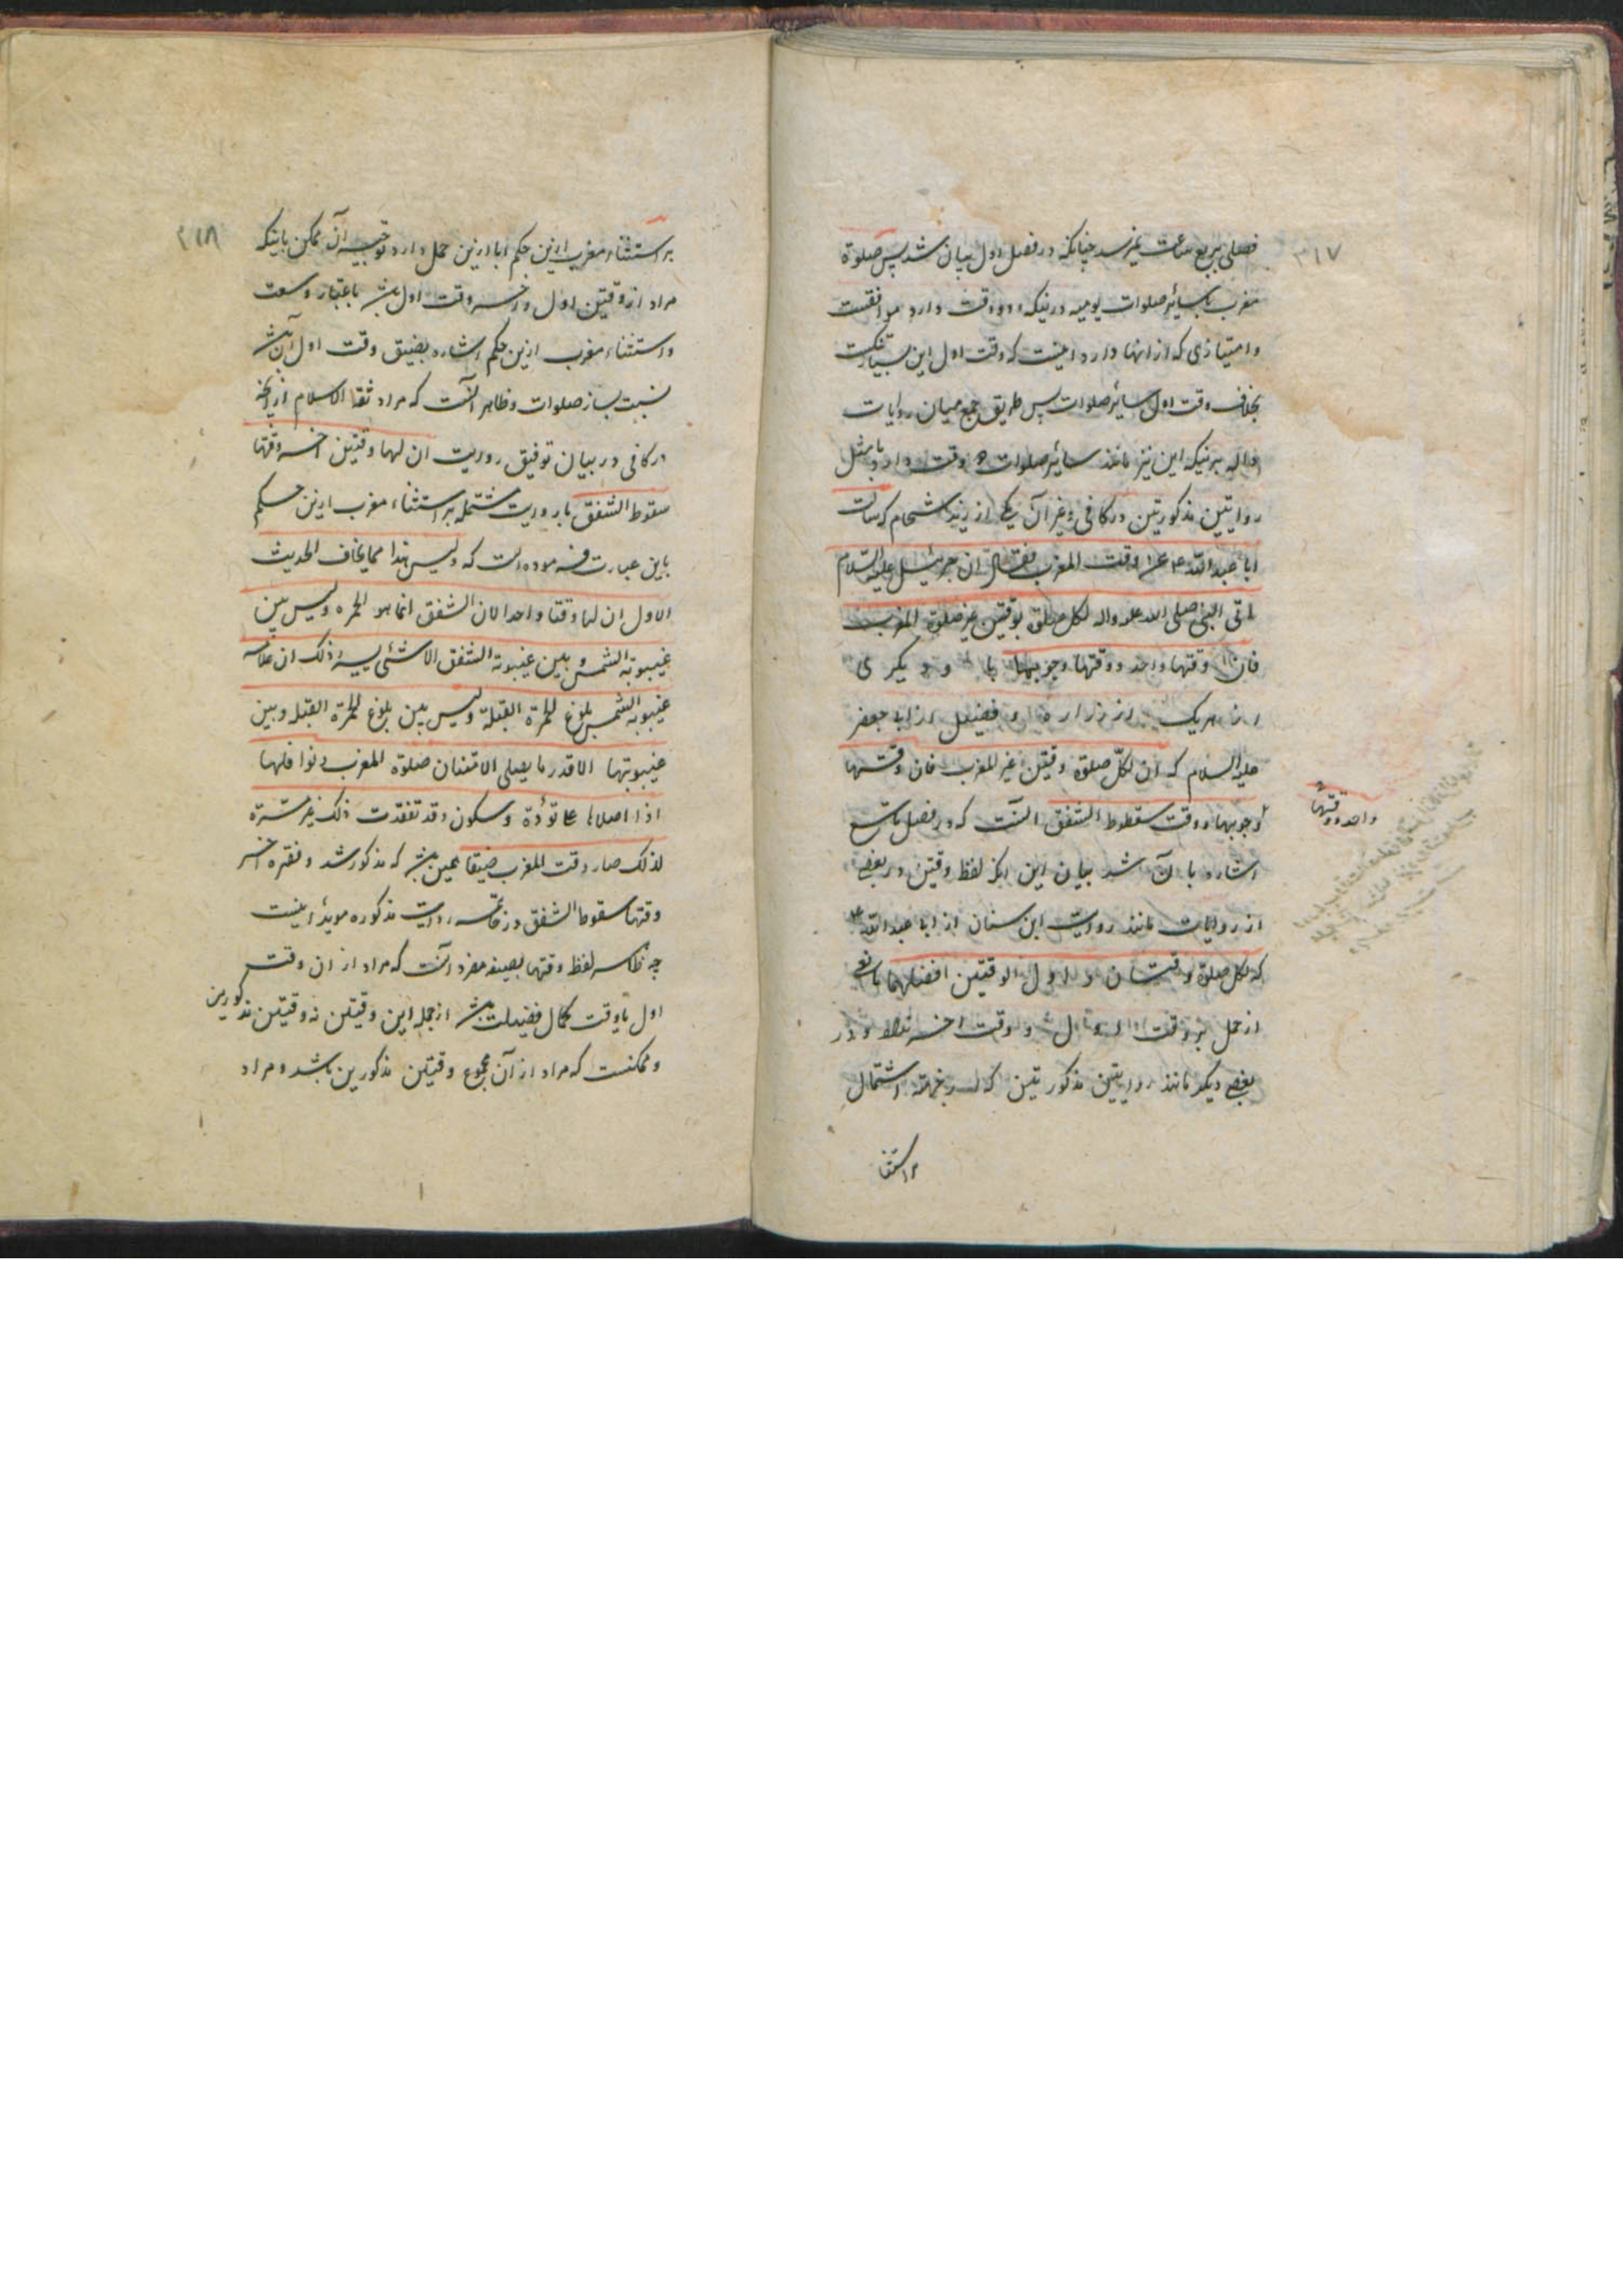 ۳۱۷
فصلی بربع ساعت نمیرسد چنانکه در فصل اول بیان شد پس صلوة
مغرب با سایر صلوات یومیه درینکه دو وقت دارد موافقست
و امتیازی که از انها دارد اینست که وقت اول این بسیار تنکست
بخلاف وقت اول سایر صلوات پس طریق جمع میان روایات
داله برینکه این نیز مانند سایر صلوات دو وقت دارد با مثل
روایتین مذکورتین در کافی و غیر آن یکی از زید شحام که سالت
ابا عبد الله ع عن وقت المغرب فقال ان جبرئیل علیه السلام
اتی النبی صلی الله علیه واله لکل صلوة بوقتین غیر صلوة المغرب
فان وقتها واحد و وقتها وجوبها و دیکری
از هریک از زراره و فضیل از ابا جعفر
علیه السلام که ان لکل صلوة وقتین غیر المغرب فان وقتها
واحد و وقتها
وجوبها و وقت سقوط الشفق انست که در فصل تاسع
اشاره بان شد بیان این انکه لفظ وقتین در بعضی
از روایات مانند روایت ابن سنان از ابا عبد الله ع
که لکل صلوة وقتان و اول الوقتین افضلهما
از حمل بر وقت اول و وقت اخر ندارد و در
بعضی دیکر مانند روایتین مذکورتین که از جهة اشتمال
بر استثنا
۳۱۸
بر استثناء مغرب ازین حکم ابا ازین حمل دارد توجیه آن ممکن باینکه
مراد از وقتین اول و اخر وقت اول باشد باعتبار وسعت
و استثناء مغرب ازین حکم اشاره بضیق وقت اول آن باشد
نسبت بسایر صلوات و ظاهر انست که مراد ثقة الاسلام ازانچه
در کافی در بیان توفیق روایت ان لها وقتین اخر وقتها
سقوط الشفق با روایت مشتمله بر استثناء مغرب ازین حکم
باین عبارت فرموده است که و لیس هذا مما یخالف الحدیث
الاول ان لها وقتا واحدا لان الشفق انما هو الحمرة و لیس بین
غیبوبة الشمس و بین غیبوبة الشفق الا شئ یسیر و ذلک ان علامة
غیبوبة الشمس بلوغ الحمرة القبلة و لیس بین بلوغ الحمرة القبلة و بین
غیبوبتها الا قدر ما یصلی الانسان صلوة المغرب و نوافلها
اذا صلاها علی تؤدة و سکون و قد تفقدت ذلک غیر مرة
لذلک صار وقت المغرب ضیقا همین باشد که مذکور شد و فقره اخر
وقتها سقوط الشفق در خاتمه روایت مذکوره موید اینست
چه ظاهر لفظ وقتها بصیغه مفرد آنست که مراد از ان وقت
اول یا وقت کمال فضیلت باشد از جمله این وقتین نه وقتین مذکورین
و ممکنست که مراد از آن مجموع وقتین مذکورین باشد و مراد